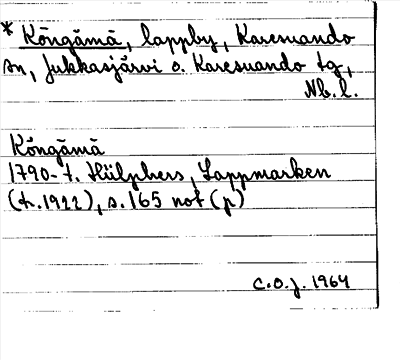 * Köngämä, lappby, Karesuando
sn, Jukkasjärvi o. Karesuando tg,
Nb. l.
Köngämä
1790-t. Hülphers, Lappmarken
(tr. 1922), s. 165 not (p)
C.O.J. 1964